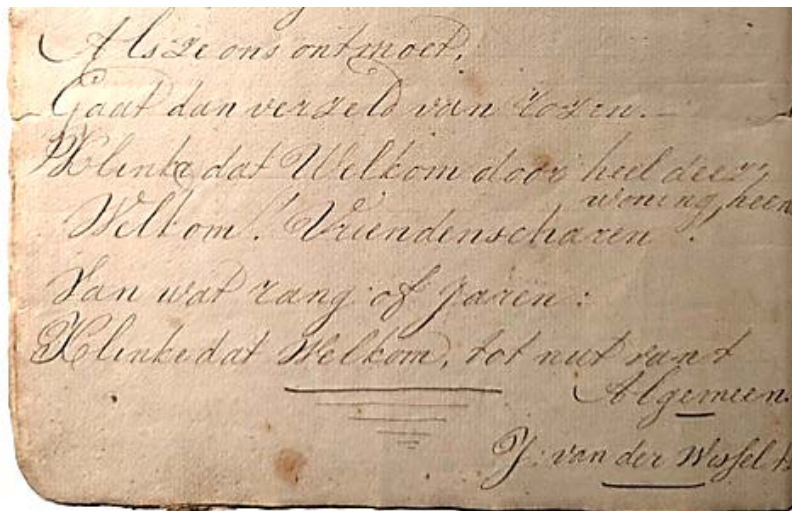 Als ze ons ontmoet.
Gaat dan verzeld van rozen.
Klinke dat Welkom door heel deez'
woning heen
Welkom! Vriendenscharen!
Van wat rang of jaren:
Klinke dat Welkom, tot nut van t
Algemeen.
J. van der Wessel